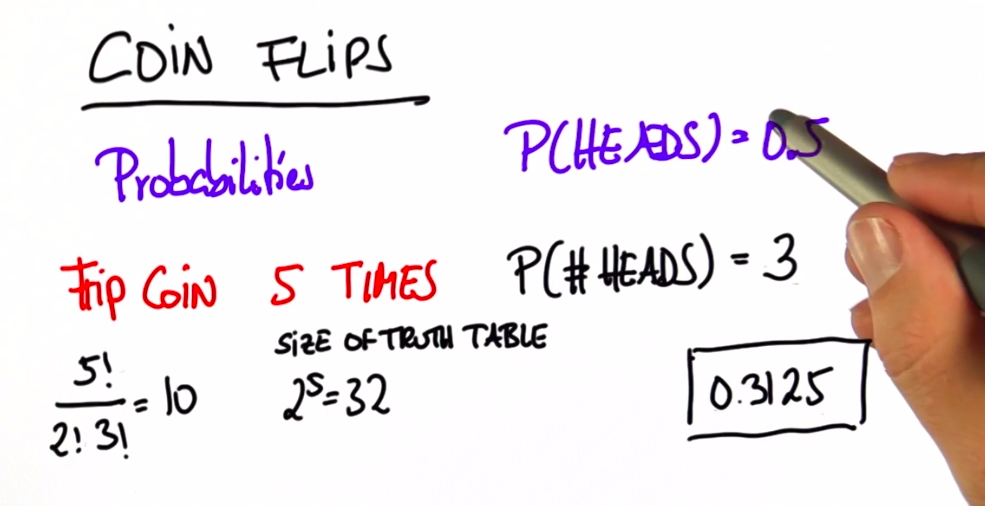 COIN FLIPS
Probabilities
P(HEADS) = 0.5
Flip COIN 5 TIMES
P(# HEADS) = 3
SIZE OF TRUTH TABLE
5!/2! 3! = 10
2^5 = 32
0.3125